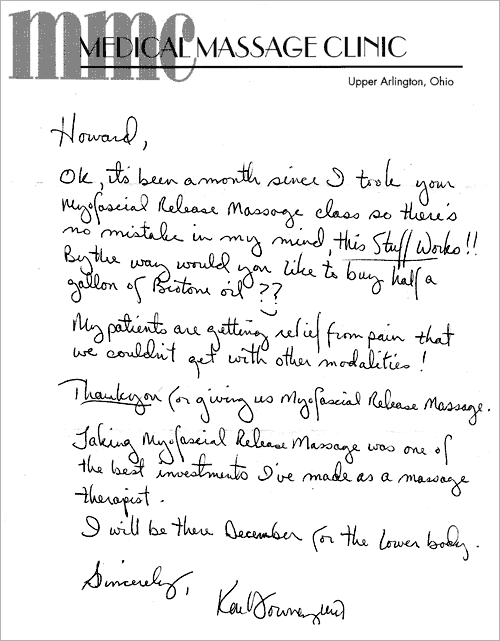 mmc
MEDICAL MASSAGE CLINIC
Upper Arlington, Ohio
Howard,
Ok, it's been a month since I took your
Myofascial Release Massage class so there's
no mistake in my mind, this Stuff Works!!
By the way would you like to buy half a
gallon of Biotone oil??
My patients are getting relief from pain that
we couldn't get with other modalities!
Thankyou for giving us Myofascial Release Massage.
Taking Myofascial Release Massage was one of
the best investments I've made as a massage
therapist.
I will be there December for the lower body.
Sincerely,